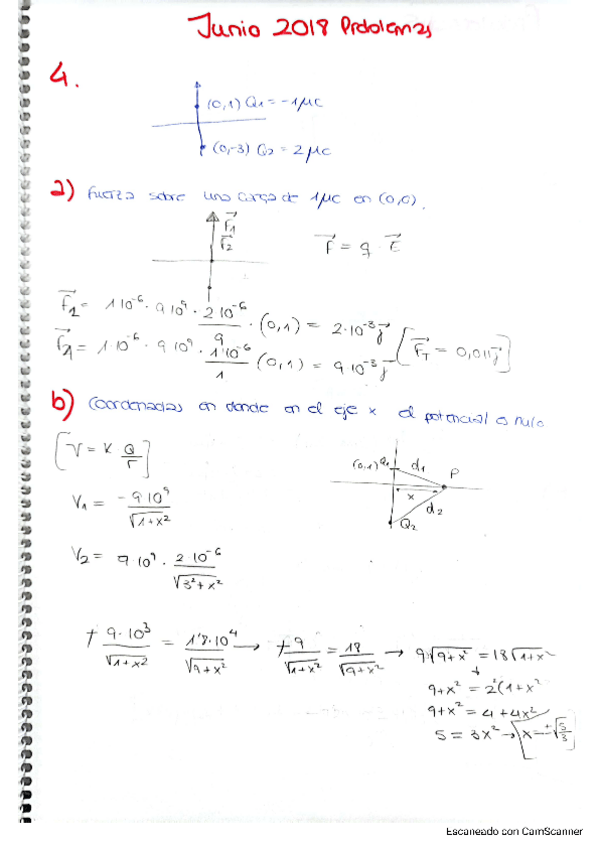 Junio 2018 Problemas
4.
(0,1) Q1 = -1μC
(0,-3) Q2 = 2μC
a) Fuerza sobre una carga de 1μC en (0,0).
F1
F2
F = q · E
F2 = 1·10^-6 · 9·10^9 · 2·10^-6/9 · (0,1) = 2·10^-3 j
F1 = 1·10^-6 · 9·10^9 · 1·10^-6/1 (0,1) = 9·10^-3 j [FT = 0,011 j]
b) Coordenadas en donde en el eje x el potencial es nulo
[V = K Q/r]
(0,1) Q1 d1 P
x
d2
Q2
V1 = -9·10^9/√(1+x²)
V2 = 9·10^9 · 2·10^-6/√(3²+x²)
+ 9·10^3/√(1+x²) = 1'8·10^4/√(9+x²) → +9/√(1+x²) = 18/√(9+x²) → 9·√(9+x²) = 18√(1+x²
9+x² = 2²(1+x²
9+x² = 4+4x²
5 = 3x² → [x = ±√(5/3)]
Escaneado con CamScanner